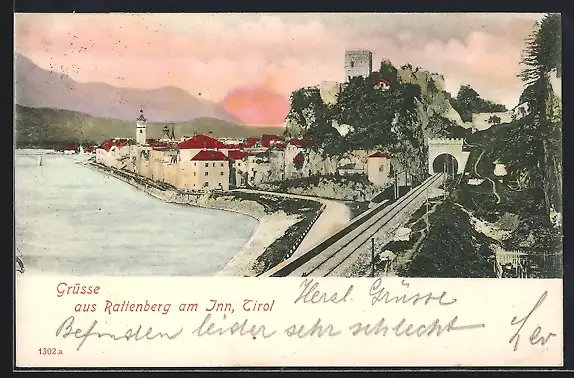 Grüsse
aus Rattenberg am Inn, Tirol
Herzl. Grüsse
Befinden leider sehr schlecht
1302 a